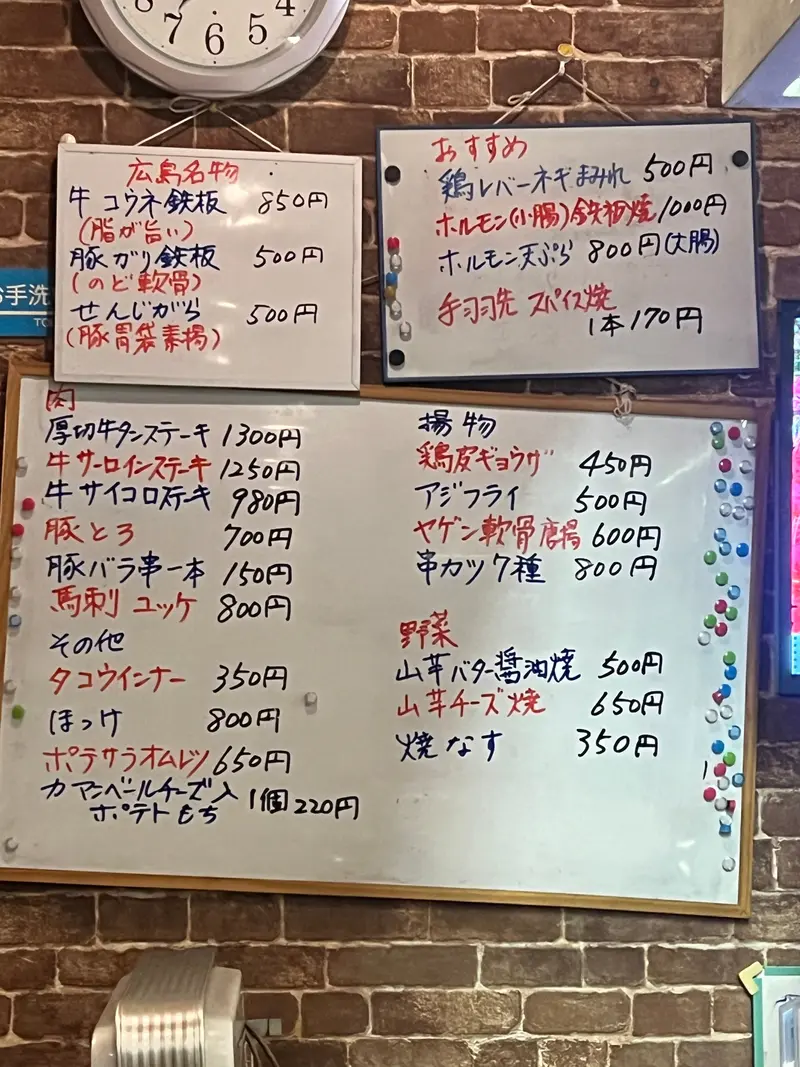 4
7 6 5
広島名物
牛コウネ鉄板 850円
(脂が旨い)
豚ガリ鉄板 500円
(のど軟骨)
せんじがら 500円
(豚胃袋素揚)
おすすめ
鶏レバーネギまみれ 500円
ホルモン(小腸)鉄板焼 1000円
ホルモン天ぷら 800円(大腸)
手羽先 スパイス焼
1本170円
お手洗
TO
肉
厚切牛タンステーキ 1300円
牛サーロインステーキ 1250円
牛サイコロステーキ 980円
豚とろ 700円
豚バラ串一本 150円
馬刺ユッケ 800円
その他
タコウインナー 350円
ほっけ 800円
ポテサラオムレツ 650円
カマンベールチーズ入
ポテトもち 1個220円
揚物
鶏皮ギョウザ 450円
アジフライ 500円
ヤゲン軟骨唐揚 600円
串カツ7種 800円
野菜
山芋バター醤油焼 500円
山芋チーズ焼 650円
焼なす 350円